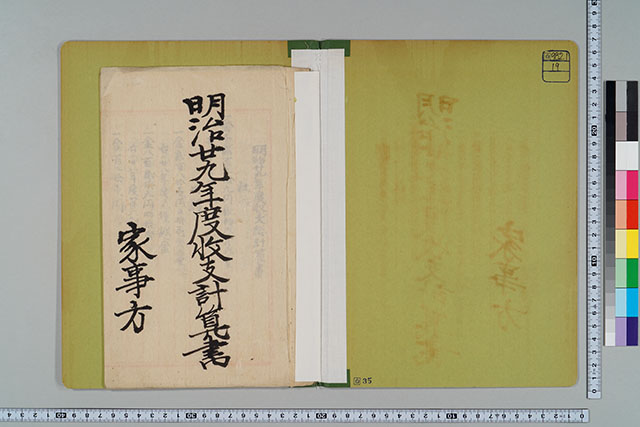 明治廿九年度收支計算書
家事方
19
35